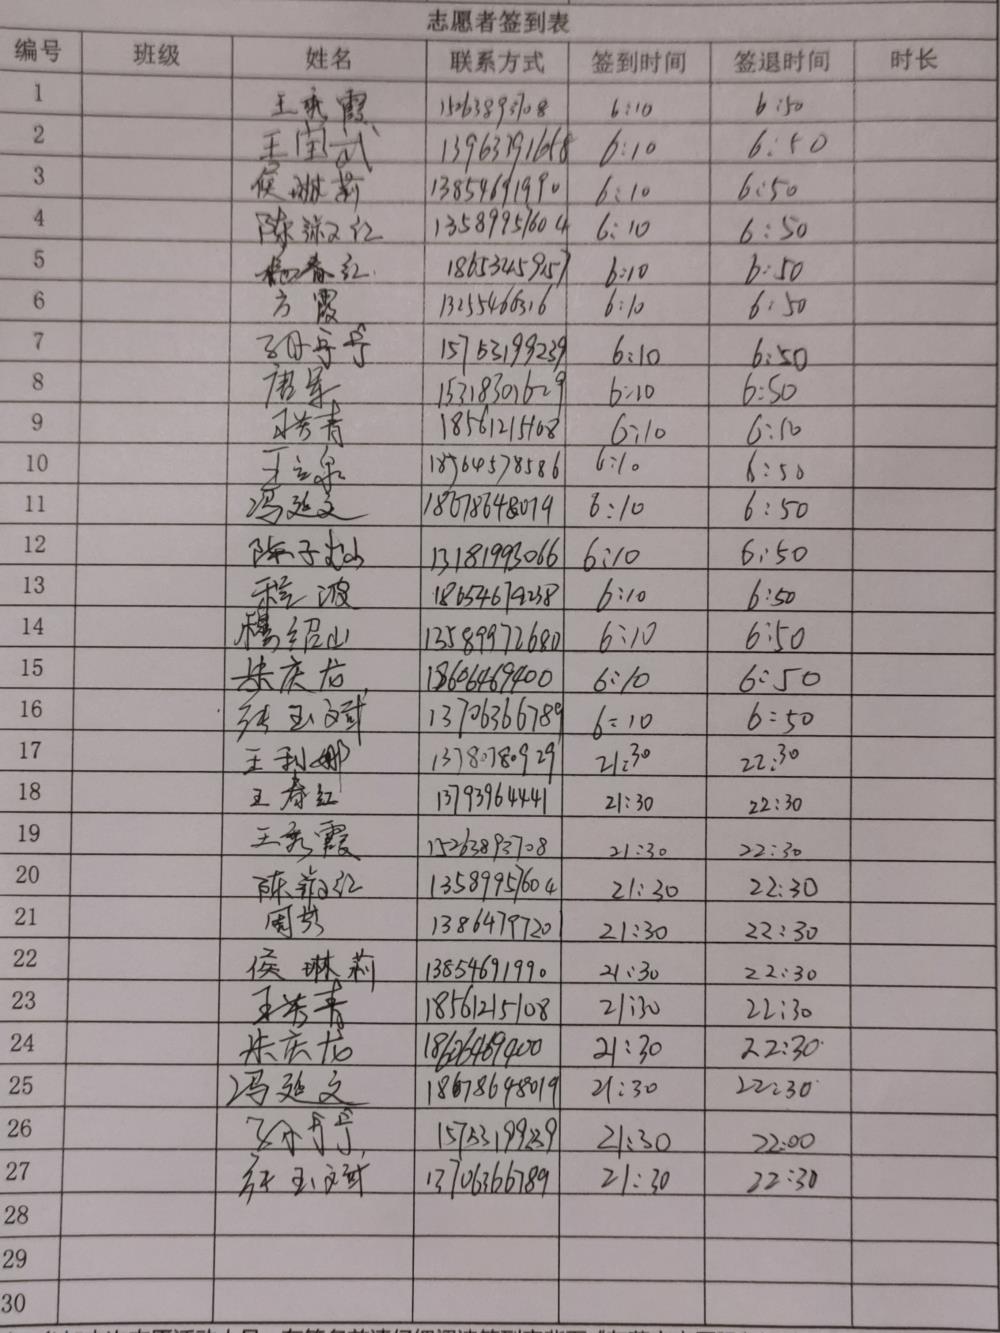 志愿者签到表
编号 班级 姓名 联系方式 签到时间 签退时间 时长
1 王秀霞 15263893708 6:10 6:50
2 王国武 13963791668 6:10 6:50
3 侯琳莉 13854691990 6:10 6:50
4 陈 红 13589957604 6:10 6:50
5 杨春红 18653245957 6:10 6:50
6 方霞 13255466316 6:10 6:50
7 15753199239 6:10 6:50
8 唐军 15318301629 6:10 6:50
9 王芳青 18561215108 6:10 6:50
10 王立泉 18764578586 6:10 6:50
11 冯延文 18678648019 6:10 6:50
12 陈子 13181993066 6:10 6:50
13 程波 18654679238 6:10 6:50
14 杨绍山 13589972680 6:10 6:50
15 朱庆龙 18606469400 6:10 6:50
16 张玉斌 13706366789 6:10 6:50
17 王利娜 13780780929 21:30 22:30
18 王春红 13793964441 21:30 22:30
19 王秀霞 15263893708 21:30 22:30
20 陈 红 13589957604 21:30 22:30
21 周 13864797201 21:30 22:30
22 侯琳莉 13854691990 21:30 22:30
23 王芳青 18561215108 21:30 22:30
24 朱庆龙 18606469400 21:30 22:30
25 冯延文 18678648019 21:30 22:30
26 15753199239 21:30 22:00
27 张玉斌 13706366789 21:30 22:30
28
29
30